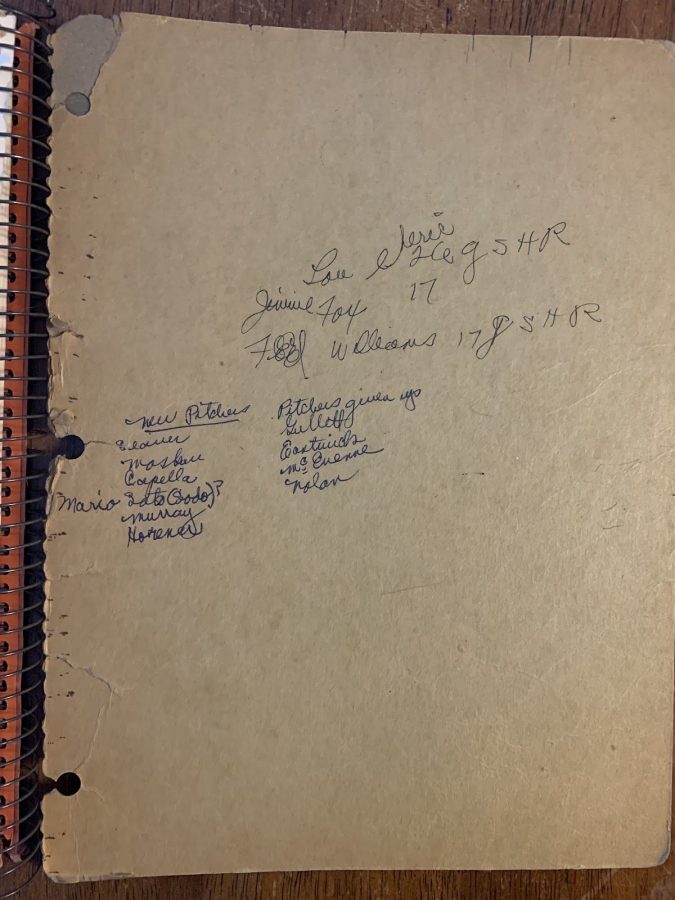 Lou Geric
26 g S H R
Jimmie Fox 17
Williams 17 g S H R
New Pitchers
Seaver
Moskau
Capella
Mario Soto (Sodo)?
Murray
Pitchers given up
Gullett
Eastwick
Mc Enenne
Nolan